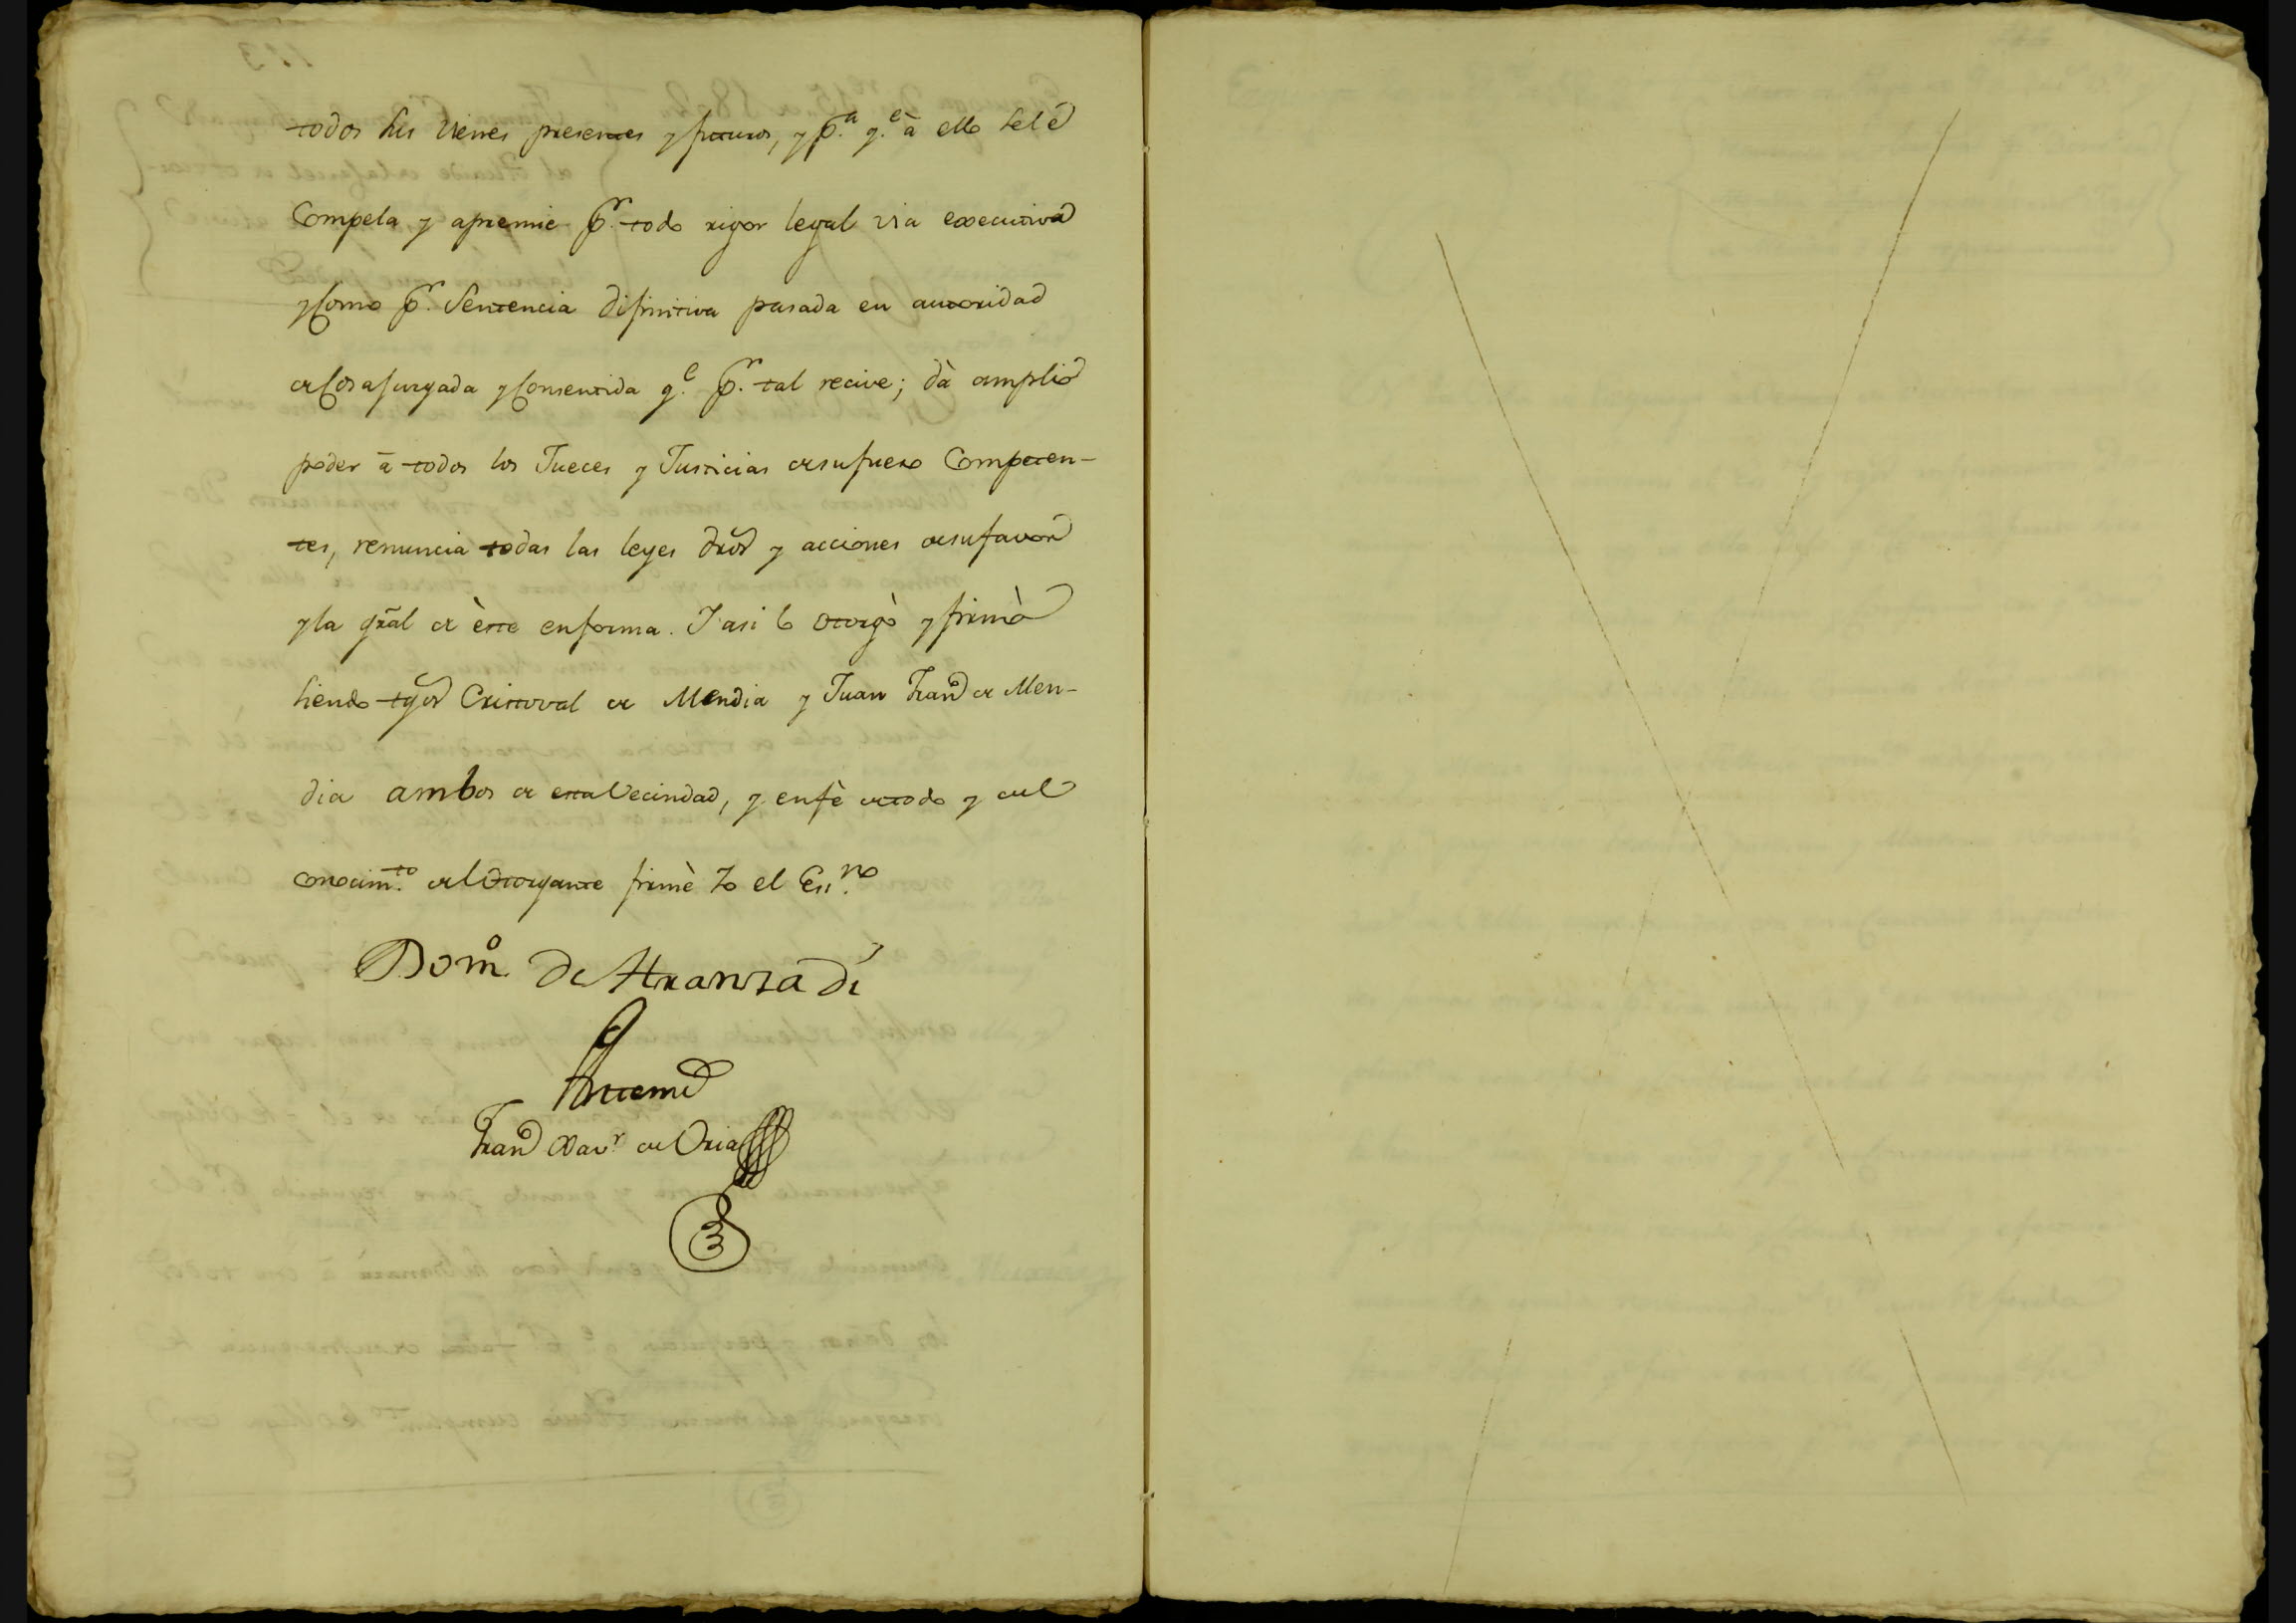 todos sus vienes presentes y futuros, y p.ª q.e à ello sele
Compela y apremie p.r todo rigor legal via executiva
y Como p.r Sentencia difinitiva pasada en autoridad
de Cosa jusgada y Consentida q.e p.r tal recive; dà amplio
poder à todos los Jueces y Justicias de su fuero Competen-
tes, renuncia todas las leyes dros y acciones de su favor
y la gral de èste en forma. I asi lo otorgò y firmò
siendo tgos Cristoval de Mendia y Juan Franco de Men-
dia ambos de esta Vecindad, y en fè de todo y del
conocim.to del Otorgante firmè Yo el Es.no
Domo De Aranzadi
Antemi
Franco Xavr de Oria